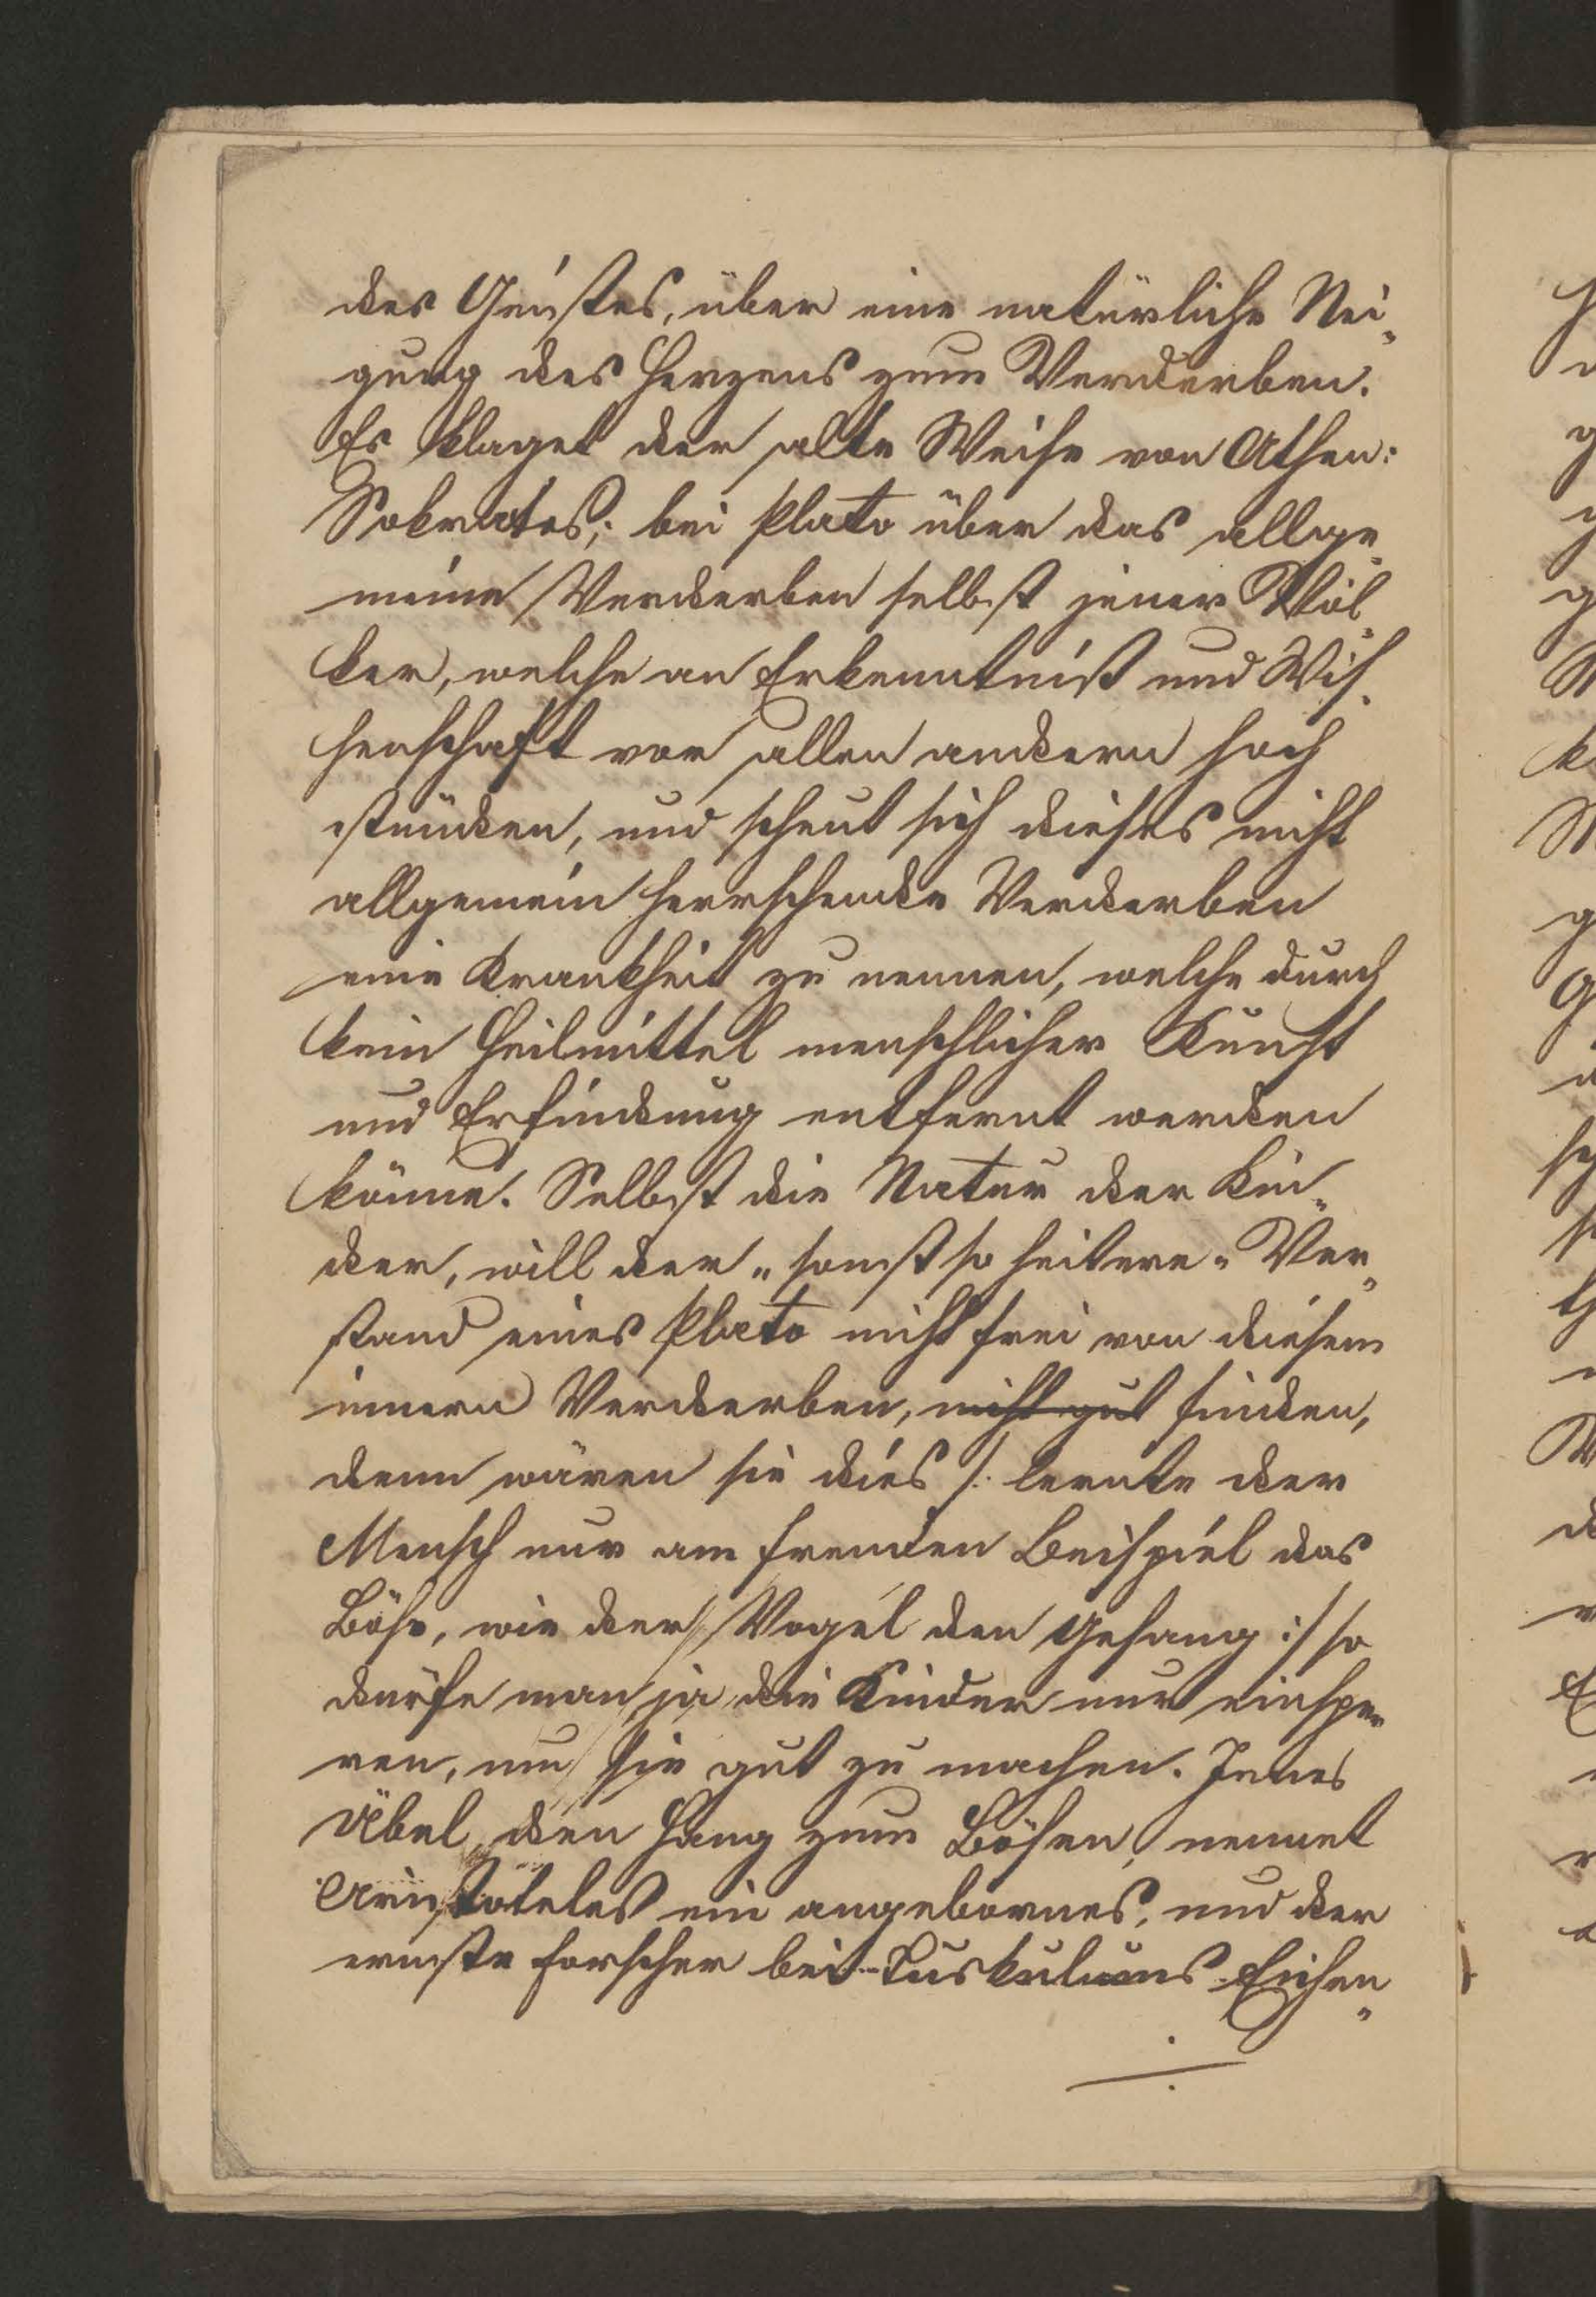 des Geistes, über eine natürliche Nei„
gung des Herzens zum Verderben.
Es klaget der alte Weise von Athen:
Sokrates; bei Plato über das allge„
meine Verderben selbst jener Völ„
ker, welche an Erkenntniß und Wis„
senschaft vor allen andern hoch
stünden, und scheut sich dieses nicht
allgemein herrschende Verderben
eine Krankheit zu nennen, welche durch
kein Heilmittel menschlicher Kunst
und Erfindung entfernt werden
könne. Selbst die Natur der Kin„
der, will der „sonst so heitere" Ver„
stand eines Plato nicht frei von diesem
innern Verderben, nicht gut finden,
denn wären sie dies /: lernte der
Mensch nur am fremden Beispiel das
Böse, wie der Vogel den Gesang :/ so
dürfe man ja die Kinder nur einsper„
ren, um sie gut zu machen. Jenes
Übel, den Hang zum Bösen, nennet
Aristoteles ein angebornes, und der
ernste Forscher bei Tuskulums Eichen„